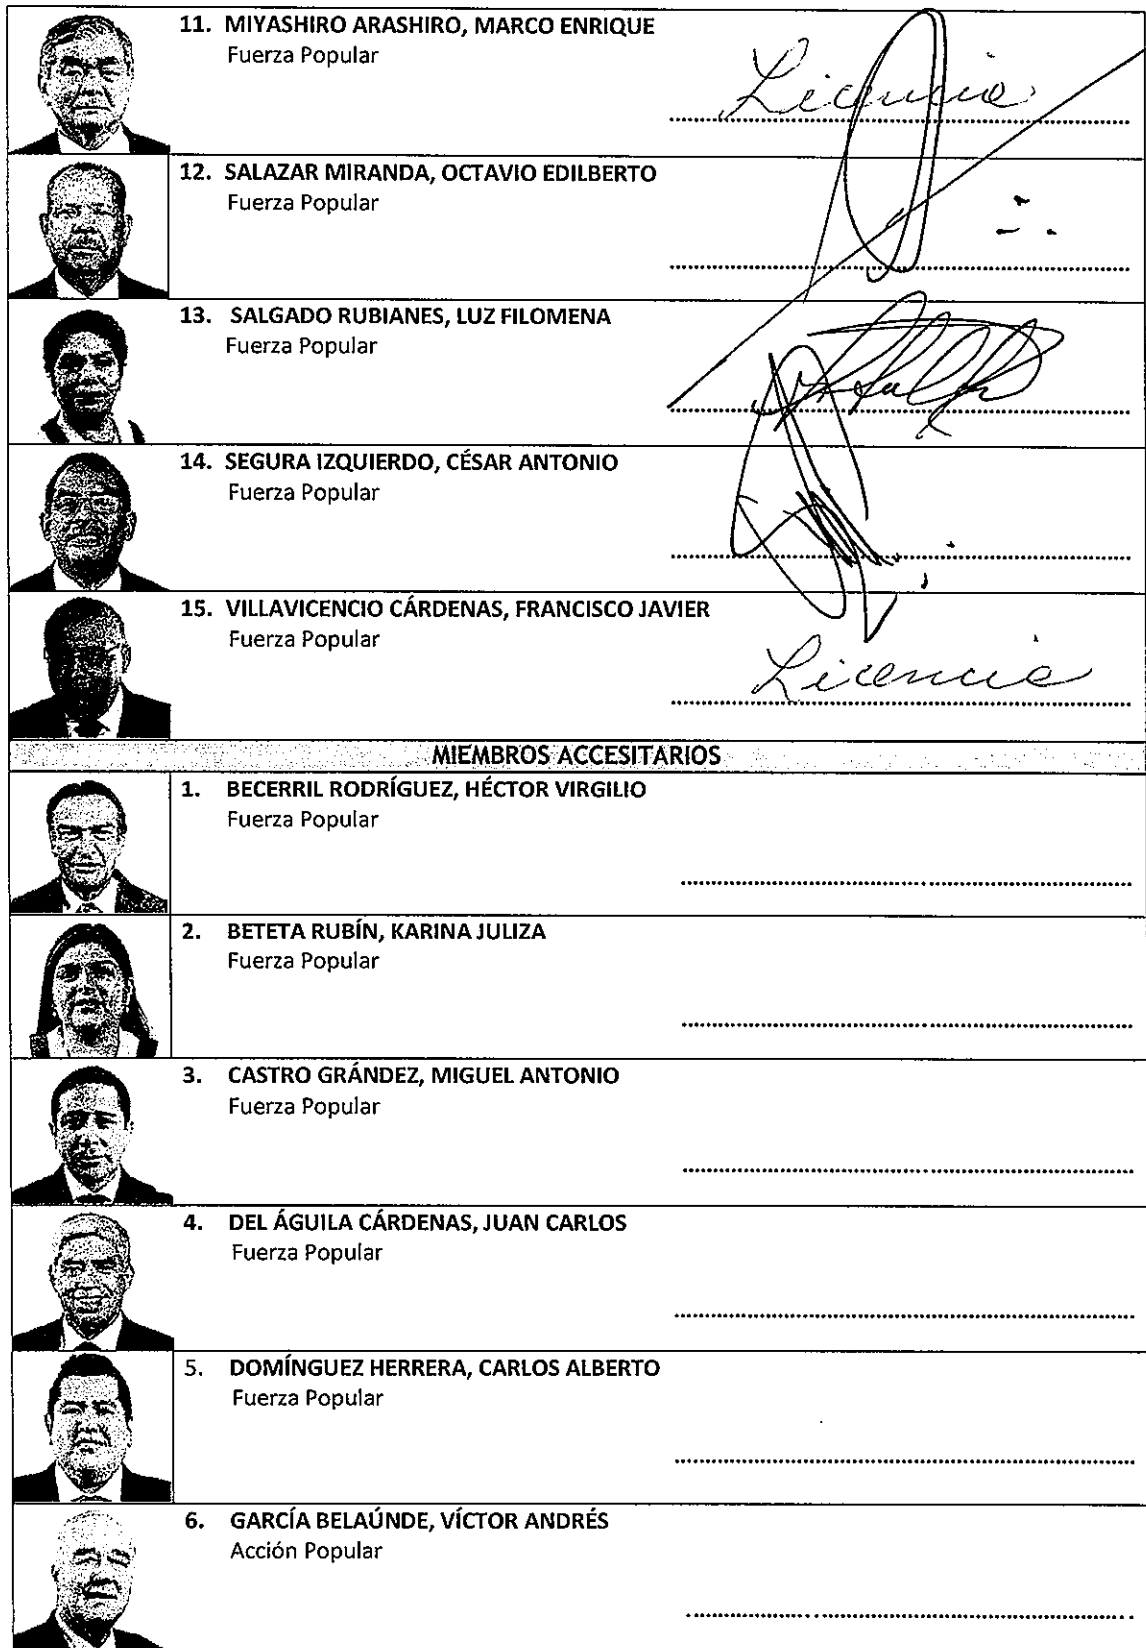 11. MIYASHIRO ARASHIRO, MARCO ENRIQUE
Fuerza Popular
Licencia
12. SALAZAR MIRANDA, OCTAVIO EDILBERTO
Fuerza Popular
13. SALGADO RUBIANES, LUZ FILOMENA
Fuerza Popular
14. SEGURA IZQUIERDO, CÉSAR ANTONIO
Fuerza Popular
15. VILLAVICENCIO CÁRDENAS, FRANCISCO JAVIER
Fuerza Popular
Licencia
MIEMBROS ACCESITARIOS
1. BECERRIL RODRÍGUEZ, HÉCTOR VIRGILIO
Fuerza Popular
2. BETETA RUBÍN, KARINA JULIZA
Fuerza Popular
3. CASTRO GRÁNDEZ, MIGUEL ANTONIO
Fuerza Popular
4. DEL ÁGUILA CÁRDENAS, JUAN CARLOS
Fuerza Popular
5. DOMÍNGUEZ HERRERA, CARLOS ALBERTO
Fuerza Popular
6. GARCÍA BELAÚNDE, VÍCTOR ANDRÉS
Acción Popular